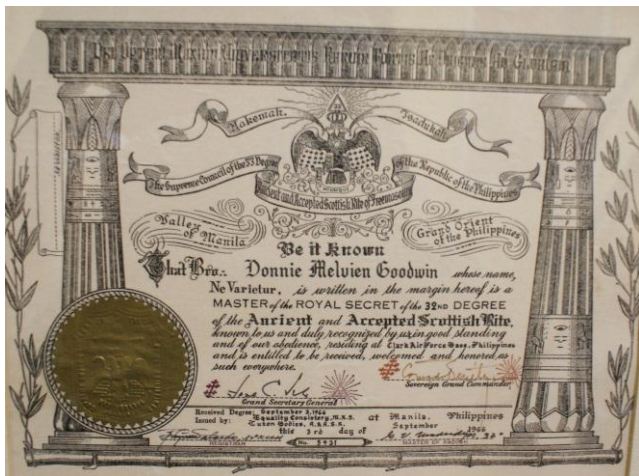 Hakemah.
Tsedukah
The Supreme Council of the 33 Degree
of the Republic of the Philippines
Ancient and Accepted Scottish Rite of Freemasonry
Valley of Manila
Grand Orient of the Philippines
Be it Known
That Bro∴ Donnie Melvien Goodwin whose name,
Ne Varietur, is written in the margin hereof is a
MASTER of the ROYAL SECRET of the 32ND DEGREE
of the Ancient and Accepted Scottish Rite,
known to us and duly recognized by us in good standing
and of our obedience, residing at Clark Air Force Base, Philippines
and is entitled to be received, welcomed and honored as
such everywhere.
Grand Secretary General
Sovereign Grand Commander
Received Degree: September 3, 1966
Issued by: Equality Consistory, M.R.S. at Manila, Philippines
Bodies, A.&A.S.R. this 3rd day of September 1966
REGISTRAR
MASTER OF KADOSH
No. 5931